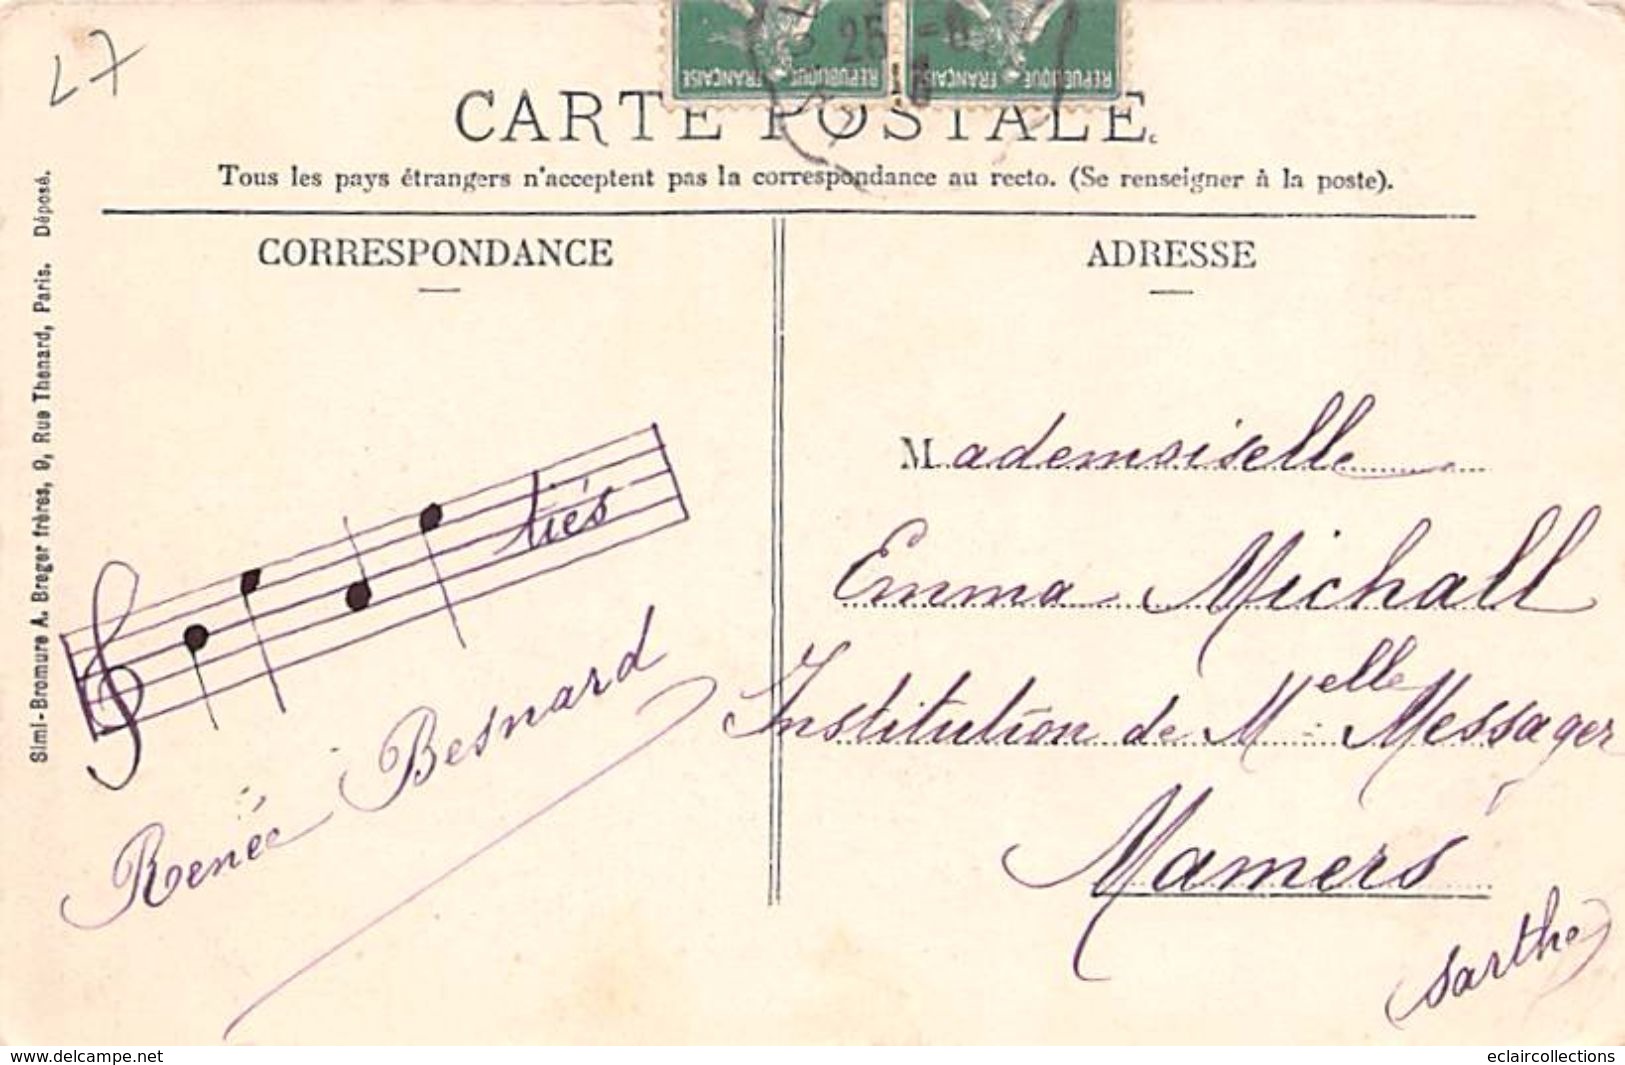 L7
REPUBLIQUE FRANÇAISE
REPUBLIQUE FRANÇAISE
25
CARTE POSTALE
Tous les pays étrangers n'acceptent pas la correspondance au recto. (Se renseigner à la poste).
CORRESPONDANCE
ADRESSE
Simi-Bromure A. Breger frères, 9, Rue Thenard, Paris. Déposé.
tiés
Renée Besnard
Mademoiselle
Emma Michall
Institution de Melle Messager
Mamers
(Sarthe)
www.delcampe.net
eclaircollections